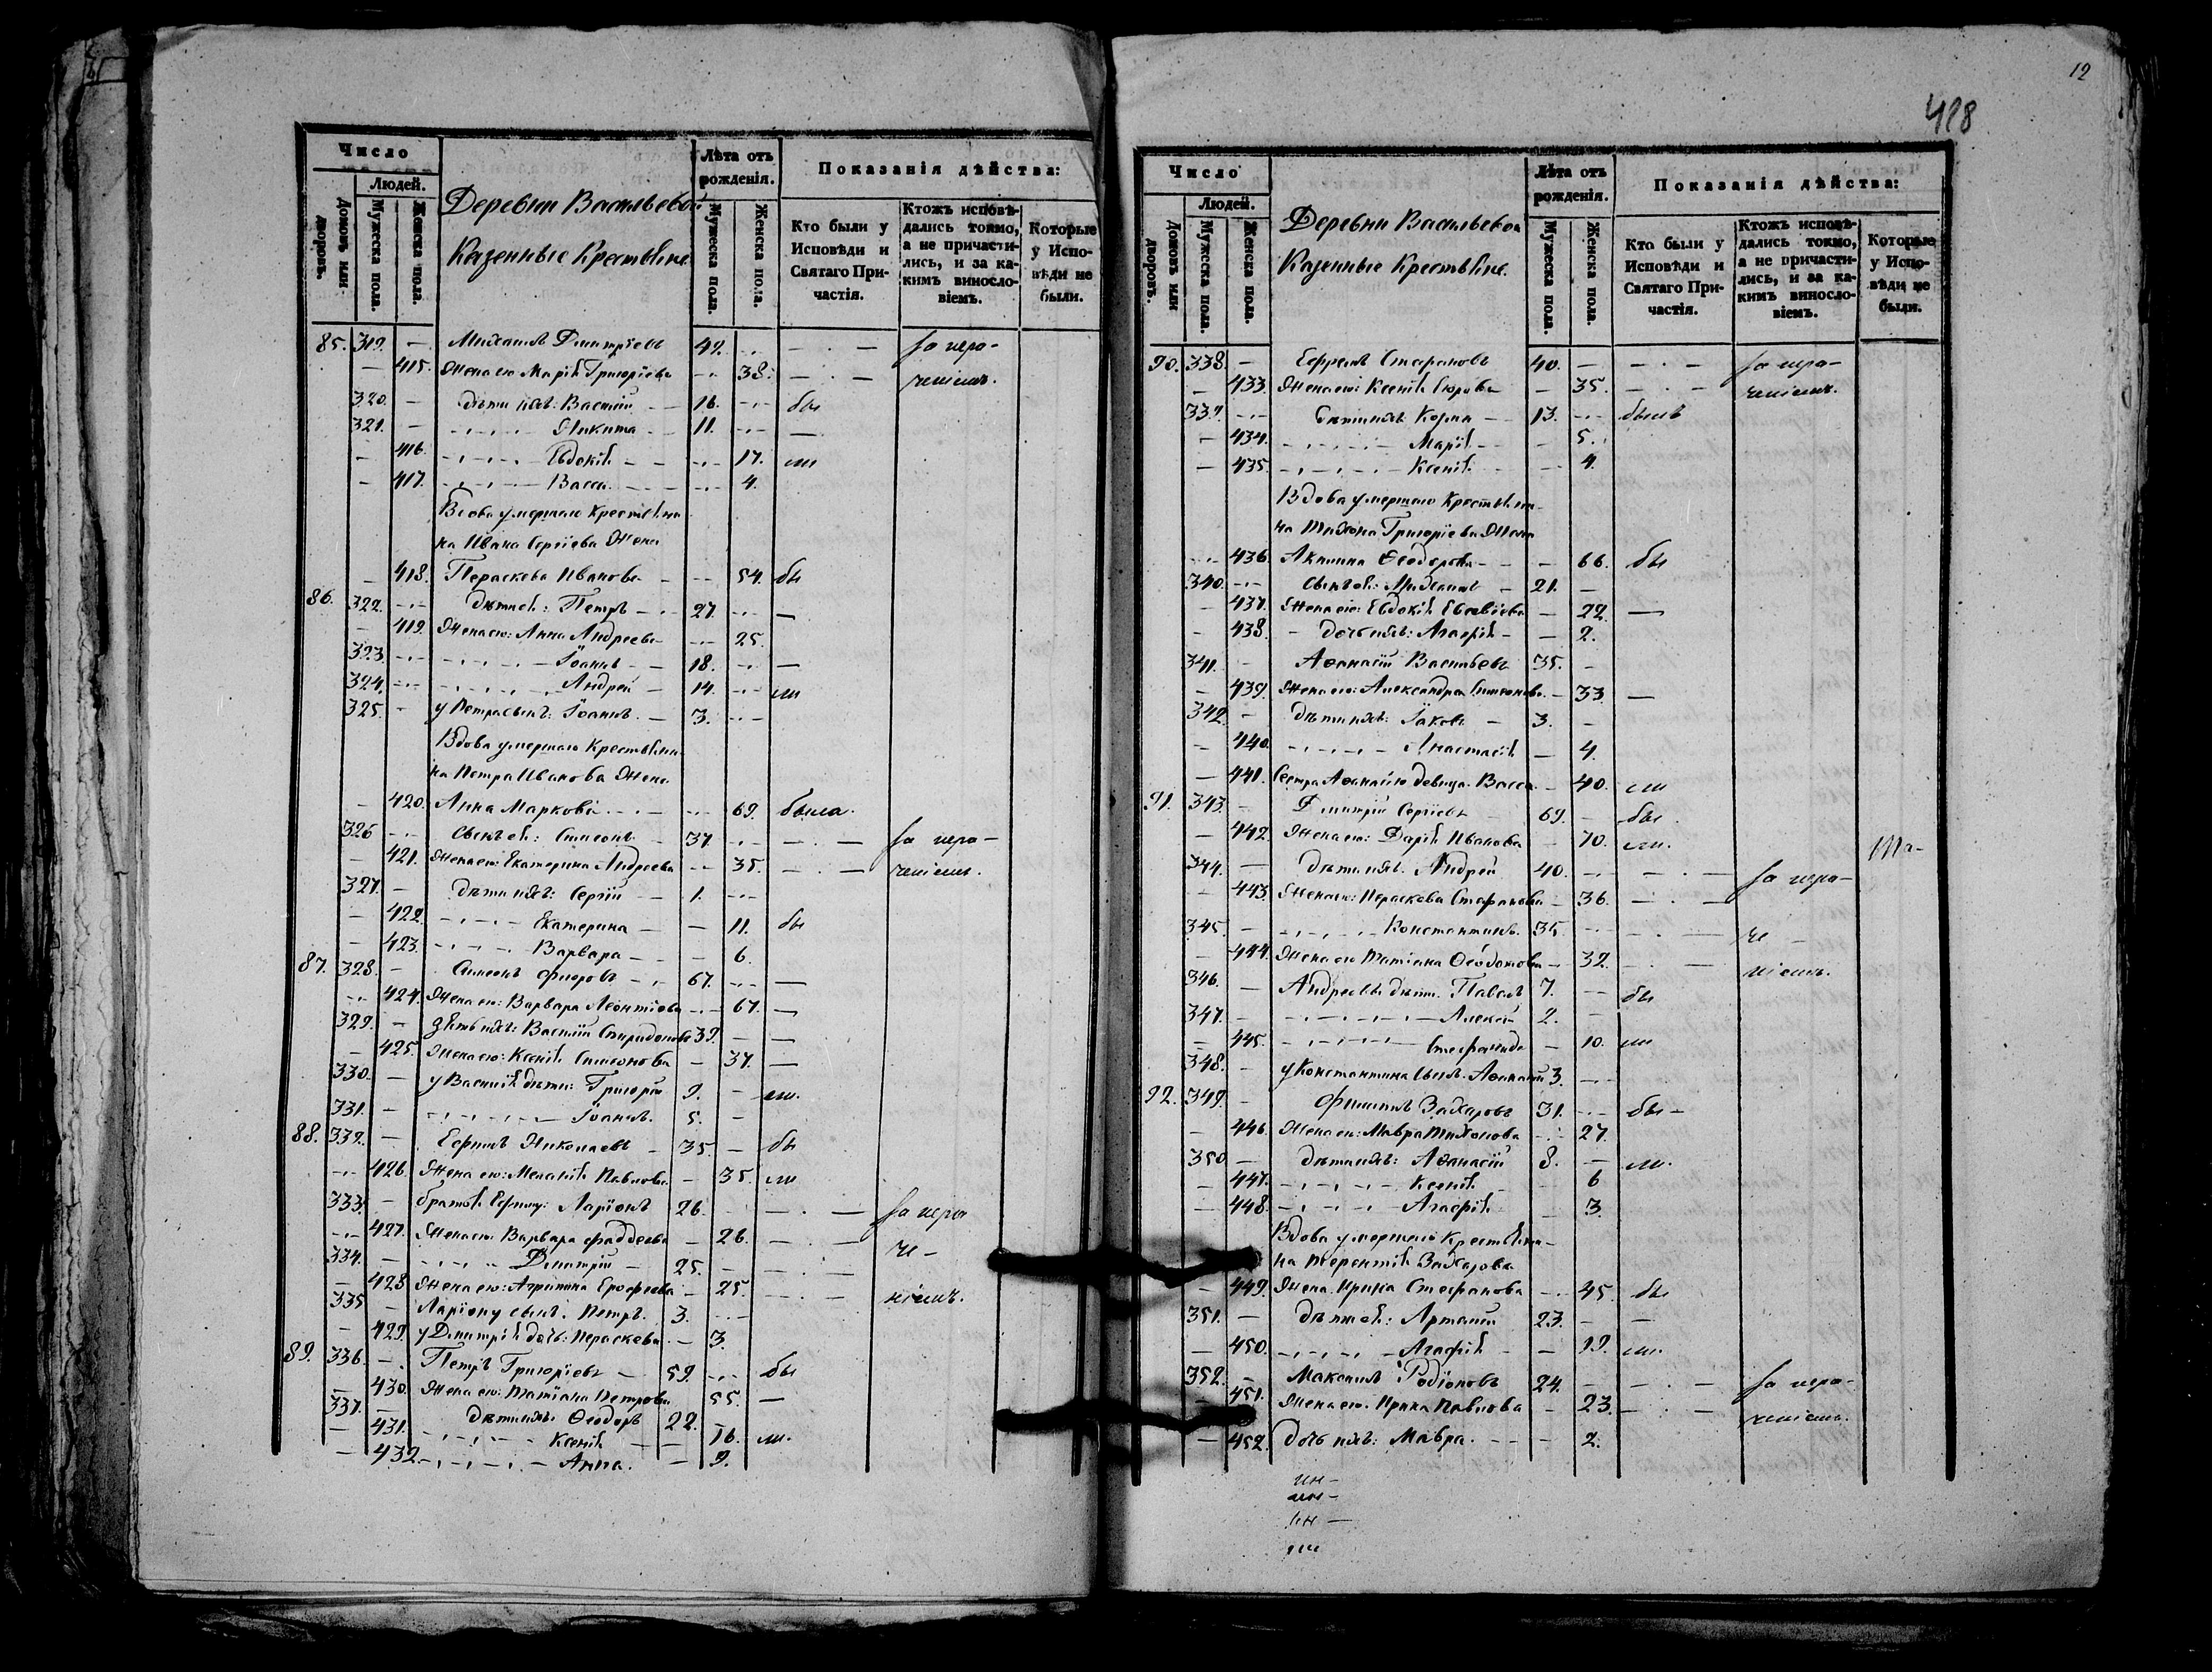 12
418
Число
Людей.
Домовъ или дворовъ.
Мужеска пола.
Женска пола.
Деревни Васильевой
Казенные Крестьяне.
Лѣта отъ рожденія.
Мужеска пола.
Женска пола.
Показанія дѣйства:
Кто были у Исповѣди и Святаго Причастія.
Ктожъ исповѣдались токмо, а не причастились, и за какимъ винословіемъ.
Которые у Исповѣди не были.
85. 319. — Михаилъ Димитріевъ 42. — . — за нера-
— 415. Жена его Марія Григоріева 38. — . — ченіемъ.
320. — Дѣти ихъ: Василій 16. бы
321. — Никита 11. —
— 416. Евдокія 17. ли
— 417. Васса 4.
Вдова умершаго Крестьяни-
на Ивана Сергіева Жена
— 418. Параскева Иванова 54. бы
86. 322. Дѣти ея: Петръ 27. —
— 419. Жена его: Анна Андреева 25.
323. Іоаннъ 18. —
324. Андрей 14. ли
325. — у Петра сынъ: Іоаннъ 3.
Вдова умершаго Крестьяни-
на Петра Иванова Жена
— 420. Анна Маркова 69. была.
326 Сынъ ея: Симеонъ 37. — . — за нера-
— 421. Жена его: Екатерина Андреева 35. — . — ченіемъ.
327. — Дѣти ихъ: Сергій 1.
— 422. Екатерина 11. бы
— 423. Варвара 6.
87. 328. — Симеонъ 67. —
424. Жена его: Варвара Леонтіева 67. —
329. — Зять ихъ: Василій Спиридоновъ 39. —
— 425. Жена его: Ксенія Симеонова 37. —
330. — у Василія дѣти: Григорій 9. ли.
331. — Іоаннъ 5.
88. 332. — Ефимъ Николаевъ 35. бы
426. Жена его: Меланія Павлова 35. ли
333. — братъ Ефиму: Ларіонъ 26. — . — за нера
427. Жена его: Варвара Фаддеева 26. — . — че-
334. — Димитрій 25. — . —
— 428 Жена его: Агрипина Ерофеева 25. — . — ніемъ.
335 — Ларіону сынъ: Петръ 3.
— 429. у Димитрія дочь: Параскева 3.
89. 336. — Петръ Григоріевъ 59. бы
— 430. Жена его: Татіана Петрова 55. —
337. — Дѣти ихъ: Ѳеодоръ 22. —
— 431. Ксенія 16. ли.
— 432. Анна. 9.
Число
Людей.
Домовъ или дворовъ.
Мужеска пола.
Женска пола.
Деревни Васильевой
Казенные Крестьяне.
Лѣта отъ рожденія.
Мужеска пола.
Женска пола.
Показанія дѣйства:
Кто были у Исповѣди и Святаго Причастія.
Ктожъ исповѣдались токмо, а не причастились, и за какимъ винословіемъ.
Которые у Исповѣди не были.
90. 338. — Ефремъ Стефановъ 40. — . — за нера-
— 433. Жена его: Ксенія 35. — . — ченіемъ.
339. Дѣти ихъ: 13. былъ
— 434. Марія 5.
— 435. Ксенія 4.
Вдова умершаго Крестьяни-
на Тихона Григоріева Жена
436. Акилина Ѳеодорова 66. бы
340. Сынъ ея: Михаилъ 21.
— 437. Жена его: Евдокія 22. —
— 438. Дочь ихъ: Агафія 2.
341. — Аѳанасій Васильевъ 35.
— 439. Жена его: Александра Симеонова 33. —
342. — Дѣти ихъ: Іаковъ 3.
— 440. Анастасія 4.
— 441. Сестра Аѳанасію девица Васса 40. ли
91. 343. — Димитрій Сергіевъ 69. бы
— 442. Жена его: Дарія Иванова 70. ли.
344. — Дѣти ихъ: Андрей 40. — . — за нера-
443. Жена его: Параскева Стефанова 36. — . —
345. — Константинъ 35. — . — че
— 444. Жена его Татіана 32. — . — ніемъ.
346. — Андреевы дѣти: Павелъ 7. бы
347. — Алексій 2.
— 445. Стефанида 10. ли
348. — у Константина сынъ: Аѳанасій 3.
92. 349. — Филиппъ Захаровъ 31. бы —
— 446. Жена его: Мавра Тихонова 27.
350 — Дѣти ихъ: Аѳанасій 8. ли.
— 447. Ксенія 6
— 448. Агафія 3.
Вдова умершаго Крестьяни-
на Терентія Захарова
— 449. Жена Ирина Стефанова 45. бы
351. — Дѣти ея: 23. —
— 450. Агафія 19. ли.
352. — Максимъ Родіоновъ 24. — . — за нера-
451. Жена его: Ирина Павлова 23. — . — ченіемъ.
— 452. Дочь ихъ: Мавра 2.